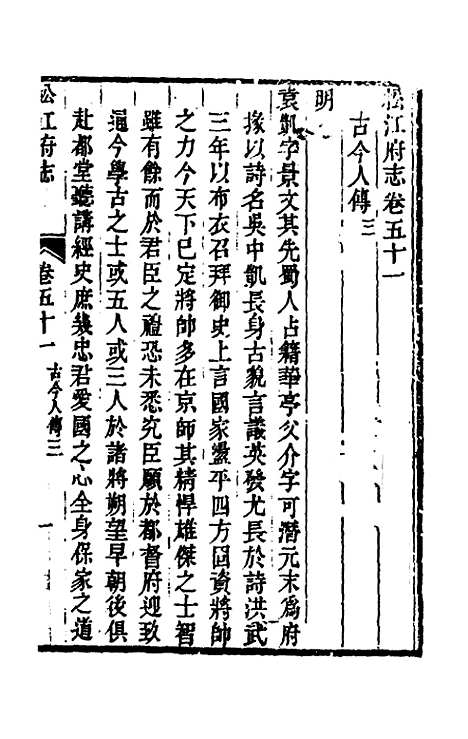 松江府志卷五十一
古今人傳三
明
袁凱字景文其先蜀人占籍華亭父介字可潛元末爲府
掾以詩名吳中凱長身古貌言議英發尤長於詩洪武
三年以布衣召拜御史上言國家盪平四方固資將帥
之力今天下已定將帥多在京師其精悍雄傑之士智
雖有餘而於君臣之禮恐未悉究臣願於都督府迎致
通今學古之士或五人或三人於諸將朔望早朝後俱
赴都堂聽講經史庶幾忠君愛國之心全身保家之道
松江府志 卷五十一 古今人傳三 一